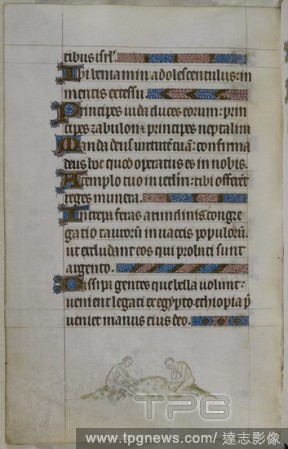 tibus isrl'.
Ibi beniamin adolescentulus: in
mentis excessu.
Principes iuda duces eorum: prin
cipes zabulon & principes neptalim
Manda deus virtuti tuā: confirma
deus hoc quod operatus es in nobis.
A templo tuo in ierlm: tibi offerēt
reges munera.
Increpa feras arundinis congre
gatio taurorū in vaccis populorū:
ut excludant eos qui probati sunt
argento.
Dissipa gentes que bella volunt:
venient legati ex egypto ethiopia p̄
veniet manus eius deo.
TPG
www.tpgnews.com/達志影像